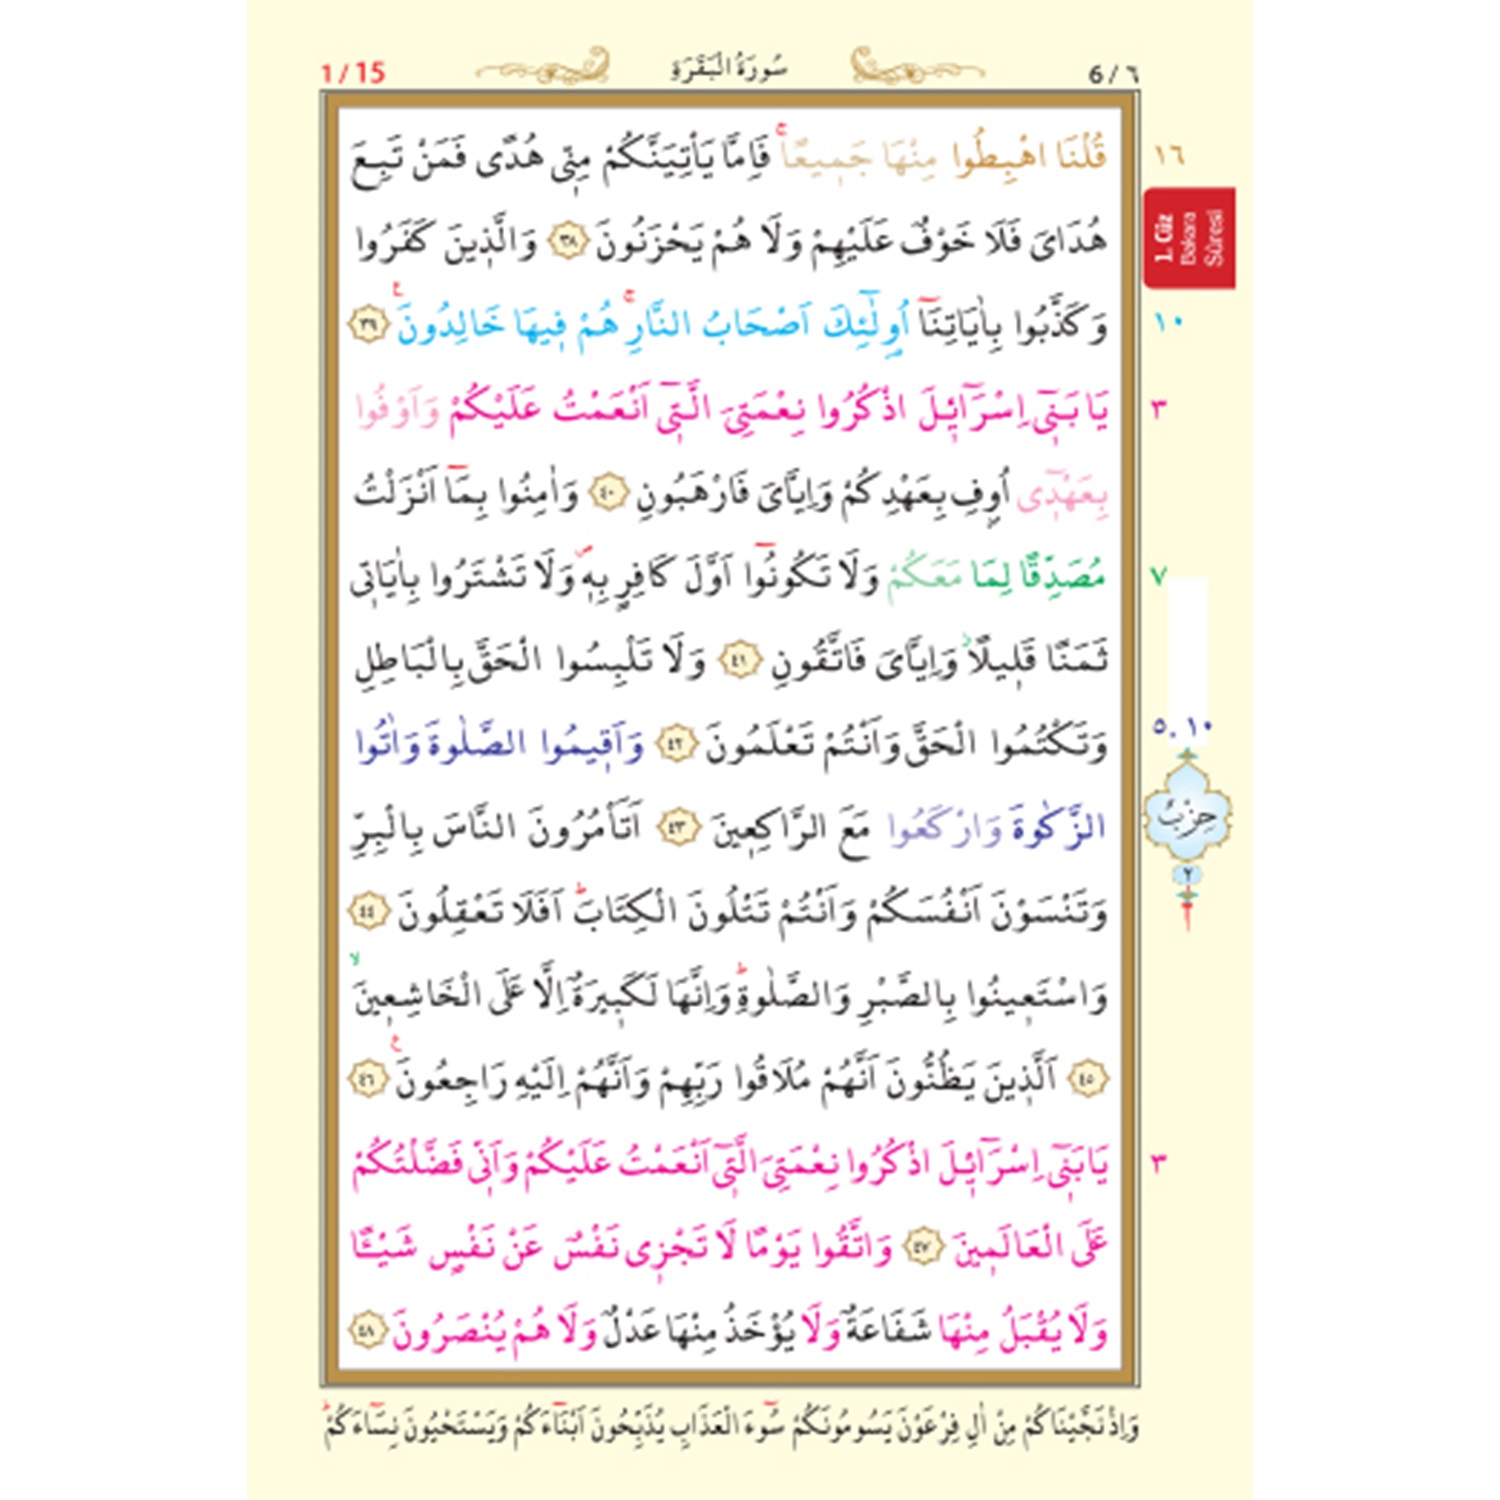 1 / 15
سُورَةُ الْبَقَرَةِ
6 / ٦
قُلْنَا اهْبِطُوا مِنْهَا جَمٖيعًاۚ فَاِمَّا يَأْتِيَنَّكُمْ مِنّٖى هُدًى فَمَنْ تَبِعَ
١٦
هُدَاىَ فَلَا خَوْفٌ عَلَيْهِمْ وَلَا هُمْ يَحْزَنُونَ ﴿٣٨﴾ وَالَّذٖينَ كَفَرُوا
1. Cüz
Bakara
Sûresi
وَكَذَّبُوا بِاٰيَاتِنَٓا اُو۬لٰٓئِكَ اَصْحَابُ النَّارِۚ هُمْ فٖيهَا خَالِدُونَ۟ ﴿٣٩﴾
١٠
يَا بَنٖٓى اِسْرَٓائٖلَ اذْكُرُوا نِعْمَتِىَ الَّتٖٓى اَنْعَمْتُ عَلَيْكُمْ وَاَوْفُوا
٣
بِعَهْدٖٓى اُو۫فِ بِعَهْدِكُمْ وَاِيَّاىَ فَارْهَبُونِ ﴿٤٠﴾ وَاٰمِنُوا بِمَٓا اَنْزَلْتُ
مُصَدِّقًا لِمَا مَعَكُمْ وَلَا تَكُونُٓوا اَوَّلَ كَافِرٍ بِهٖۖ وَلَا تَشْتَرُوا بِاٰيَاتٖى
٧
ثَمَنًا قَلٖيلًاۘ وَاِيَّاىَ فَاتَّقُونِ ﴿٤١﴾ وَلَا تَلْبِسُوا الْحَقَّ بِالْبَاطِلِ
وَتَكْتُمُوا الْحَقَّ وَاَنْتُمْ تَعْلَمُونَ ﴿٤٢﴾ وَاَقٖيمُوا الصَّلٰوةَ وَاٰتُوا
٥.١٠
الزَّكٰوةَ وَارْكَعُوا مَعَ الرَّاكِعٖينَ ﴿٤٣﴾ اَتَأْمُرُونَ النَّاسَ بِالْبِرِّ
حِزْبٌ
٢
وَتَنْسَوْنَ اَنْفُسَكُمْ وَاَنْتُمْ تَتْلُونَ الْكِتَابَؕ اَفَلَا تَعْقِلُونَ ﴿٤٤﴾
وَاسْتَعٖينُوا بِالصَّبْرِ وَالصَّلٰوةِؕ وَاِنَّهَا لَكَبٖيرَةٌ اِلَّا عَلَى الْخَاشِعٖينَۙ
﴿٤٥﴾ اَلَّذٖينَ يَظُنُّونَ اَنَّهُمْ مُلَاقُوا رَبِّهِمْ وَاَنَّهُمْ اِلَيْهِ رَاجِعُونَ۟ ﴿٤٦﴾
يَا بَنٖٓى اِسْرَٓائٖلَ اذْكُرُوا نِعْمَتِىَ الَّتٖٓى اَنْعَمْتُ عَلَيْكُمْ وَاَنّٖى فَضَّلْتُكُمْ
٣
عَلَى الْعَالَمٖينَ ﴿٤٧﴾ وَاتَّقُوا يَوْمًا لَا تَجْزٖى نَفْسٌ عَنْ نَفْسٍ شَيْـًٔا
وَلَا يُقْبَلُ مِنْهَا شَفَاعَةٌ وَلَا يُؤْخَذُ مِنْهَا عَدْلٌ وَلَا هُمْ يُنْصَرُونَ ﴿٤٨﴾
وَاِذْ نَجَّيْنَاكُمْ مِنْ اٰلِ فِرْعَوْنَ يَسُومُونَكُمْ سُٓوءَ الْعَذَابِ يُذَبِّحُونَ اَبْنَٓاءَكُمْ وَيَسْتَحْيُونَ نِسَٓاءَكُمْؕ